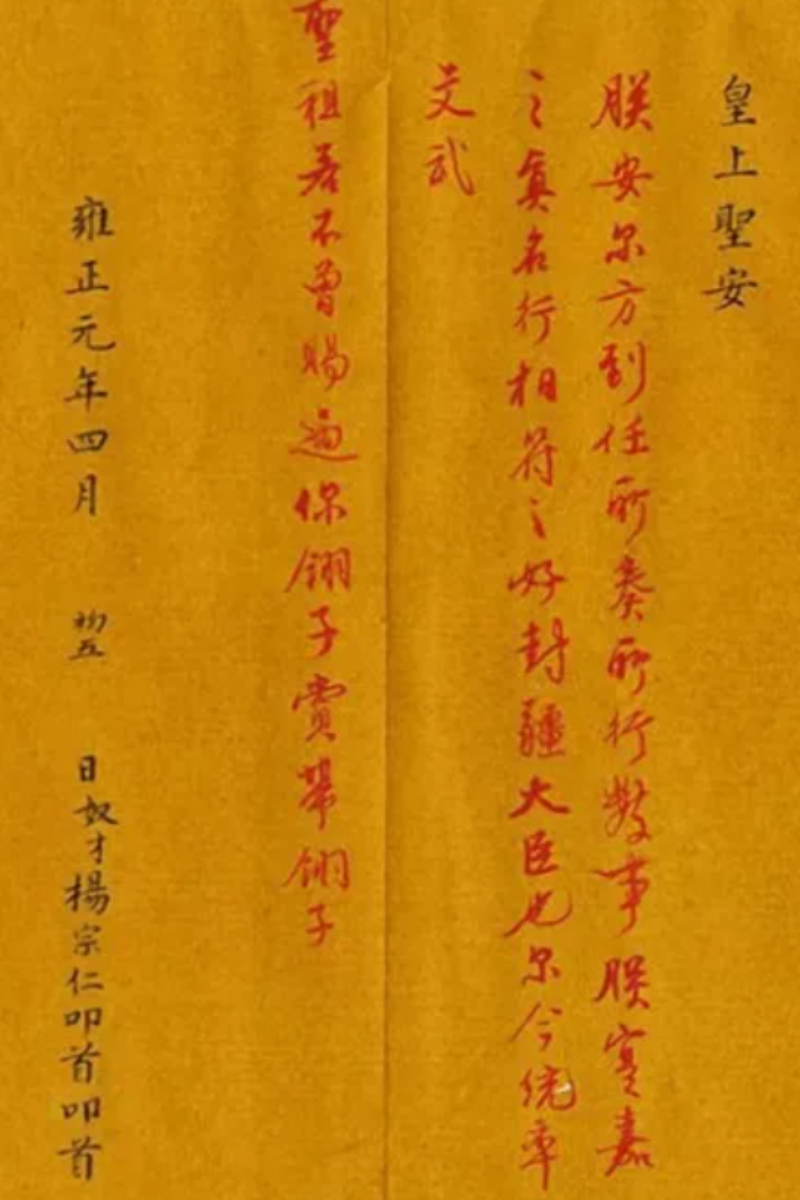 皇上聖安
朕安尔方到任所奏所行数事朕寔嘉
之真名行相符之好封疆大臣也尔今统率
文武
聖祖若不曾賜過你翎子賞帶翎子
雍正元年四月初五日奴才楊宗仁叩首叩首